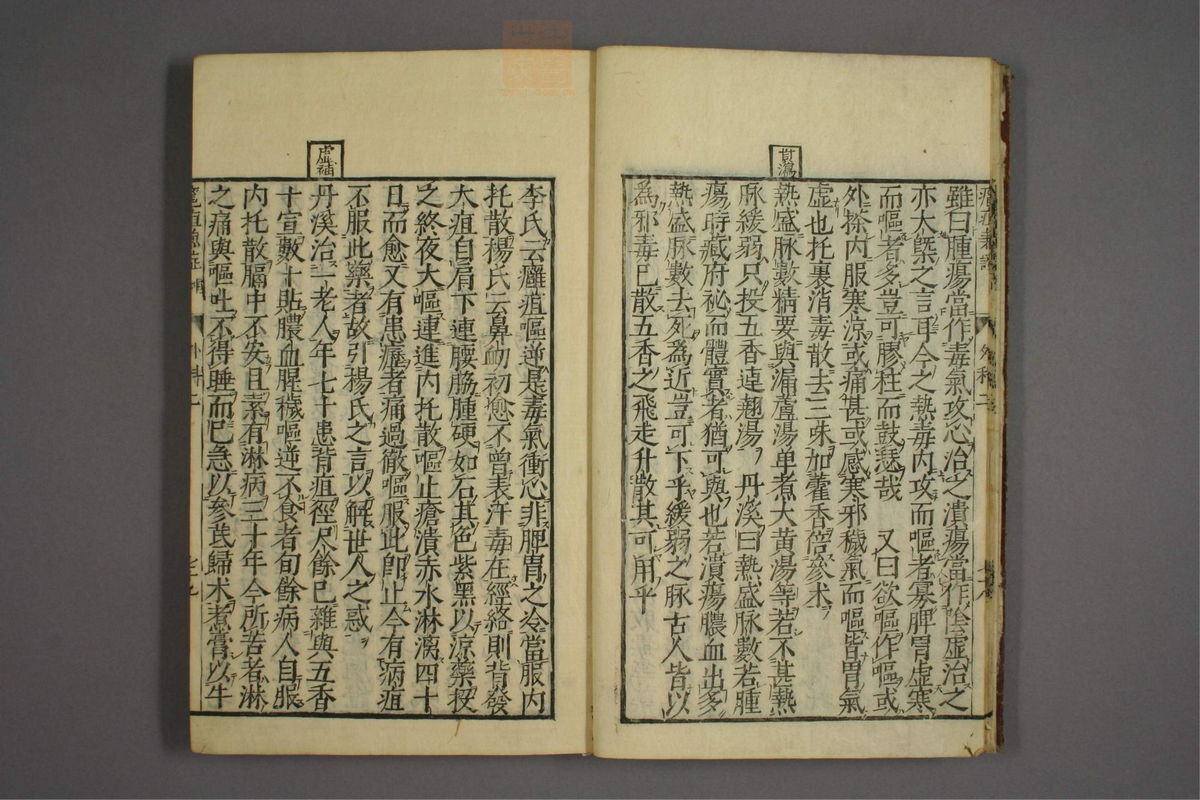 雖曰腫瘍當作毒氣攻心治之潰瘍當作陰虛治之
亦大槩之言耳今之熱毒内攻而嘔者寡脾胃虛寒
而嘔者多豈可膠柱而鼓瑟哉　又曰欲嘔作嘔或
外搽内服寒涼或痛甚或感寒邪穢氣而嘔皆胃氣
虛也托裏消毒散去三味加藿香倍參术
熱盛脉數精要與漏蘆湯单煮大黄湯等若不甚熱
脉緩弱只投五香連翹湯　丹溪曰熱盛脉數若腫
瘍時藏府祕而體實者猶可與也若潰瘍膿血出多
熱盛脉數去死為近豈可下乎緩弱之脉古人皆以
為邪毒已散五香之飛走升散其可用乎
李氏云癰疽嘔逆是毒氣衝心非脾胃之冷當服内
托散楊氏云鼻衂初愈不曾表汗毒在經絡則背發
大疽自肩下連腰脇腫硬如石其色紫黑以涼藥投
之終夜大嘔連進内托散嘔止瘡潰赤水淋漓四十
日而愈又有患瘰者痛過徹嘔服此即止今有病疽
不服此藥者故引楊氏之言以解世人之惑
虛補
丹溪治一老人年七十患背疽徑尺餘已雜與五香
十宣數十貼膿血腥穢嘔逆不食者旬餘病人自服
内托散膈中不安且素有淋病三十年今所苦者淋
之痛與嘔吐不得睡而已急以參芪歸术煮膏以牛